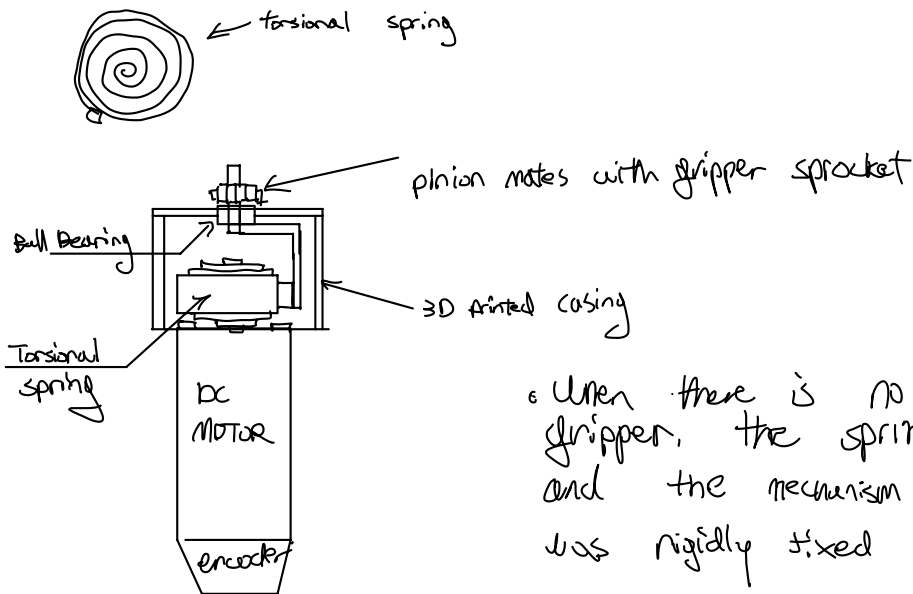 torsional spring
pinion mates with gripper sprocket
Ball Bearing
3D Printed casing
Torsional
spring
DC
MOTOR
encoder
• When there is no
gripper, the sprin
and the mechanism
was rigidly fixed